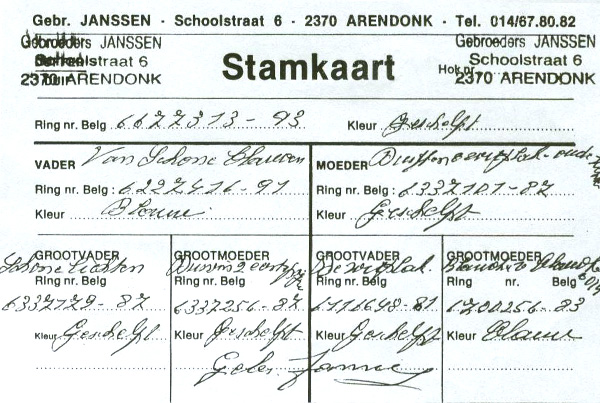 Gebr. JANSSEN · Schoolstraat 6 · 2370 ARENDONK · Tel. 014/67.80.82
Gebroeders JANSSEN
Schoolstraat 6
2370 ARENDONK
Stamkaart
Hok nr.
Gebroeders JANSSEN
Schoolstraat 6
2370 ARENDONK
Ring nr. Belg 6622313-93 Kleur Geschelpt
VADER Van Schone Blauwen
Ring nr. Belg : 6292416-91
Kleur Blauw
MOEDER
Ring nr. Belg : 6337101-87
Kleur Geschelpt
GROOTVADER
Schone Lichten
Ring nr. Belg
6332729-87
Kleur Geschelpt
GROOTMOEDER
Ring nr. Belg
6337256-87
Kleur Geschelpt
GROOTVADER
Ring nr. Belg
Kleur Geschelpt
GROOTMOEDER
Ring nr. Belg
1700256-83
Kleur Blauw
Gebr. Janssen